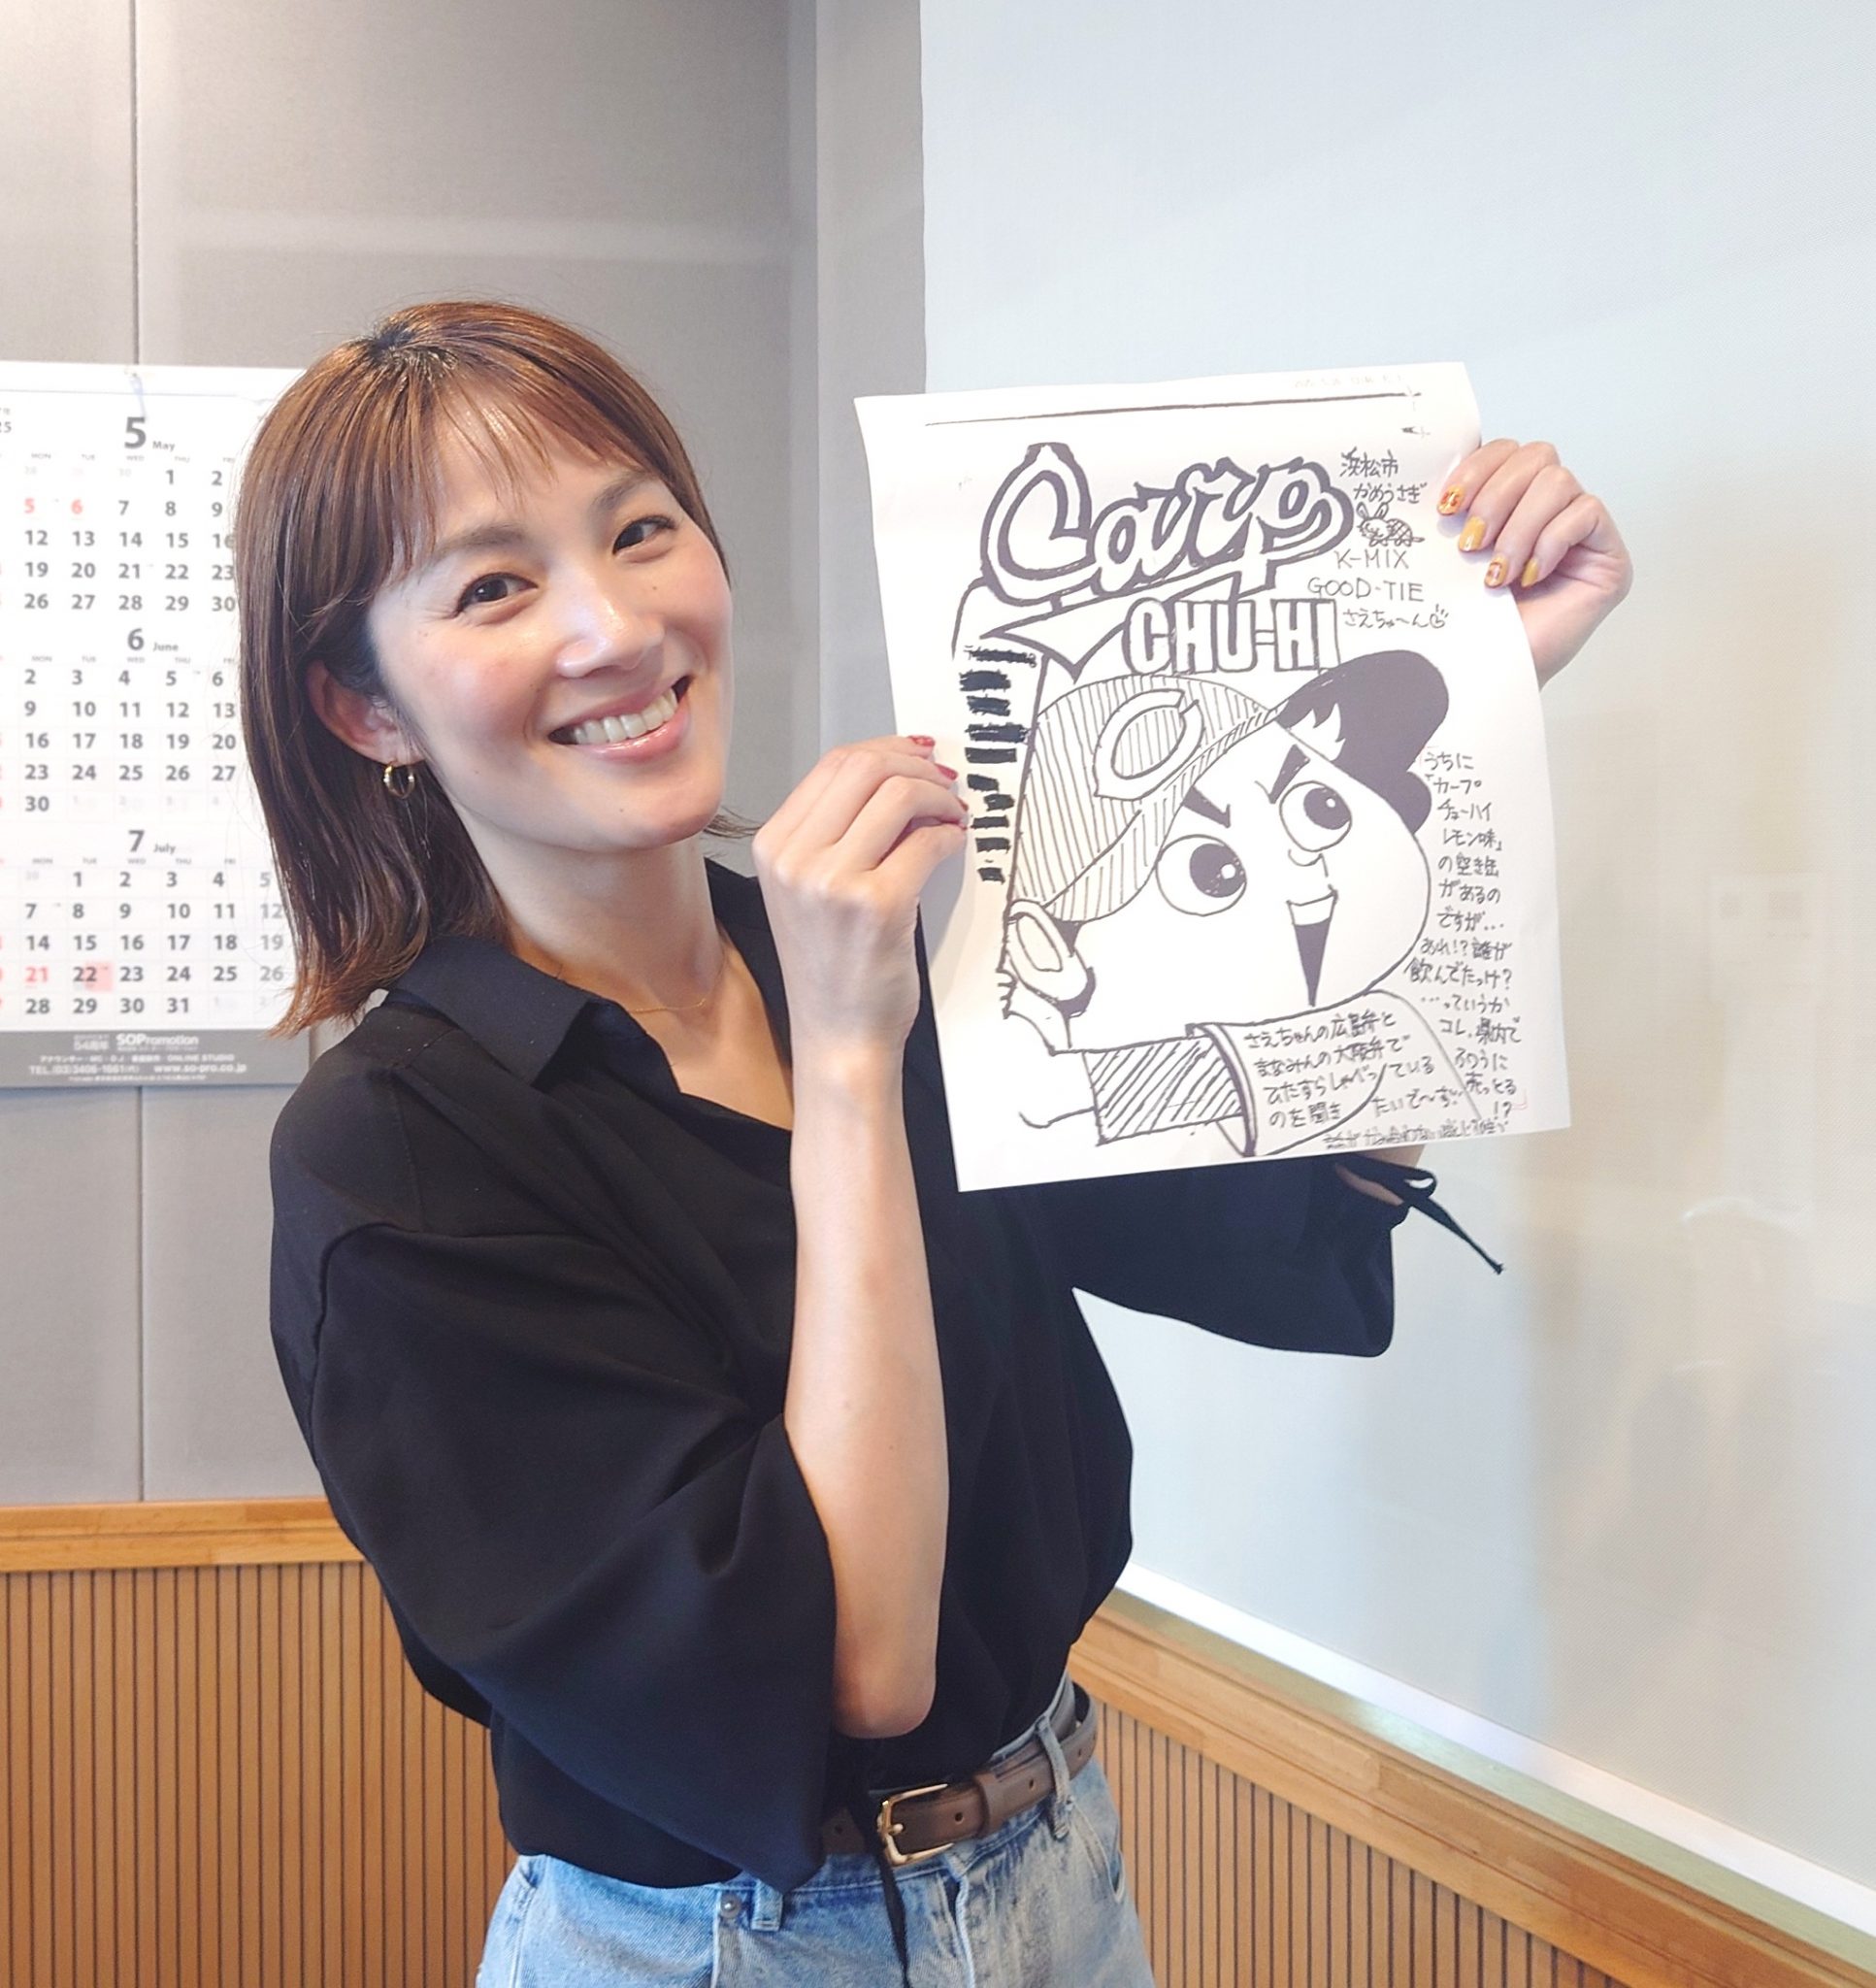 5 May
MON TUE WED THU FRI
1 2
5 6 7 8 9
12 13 14 15 16
19 20 21 22 23
26 27 28 29 30
6 June
MON TUE WED THU FRI
2 3 4 5 6
9 10 11 12 13
16 17 18 19 20
23 24 25 26 27
30
7 July
MON TUE WED THU FRI
1 2 3 4 5
7 8 9 10 11 12
14 15 16 17 18 19
21 22 23 24 25 26
28 29 30 31
SOPromotion
アナウンサー・MC・DJ ONLINE STUDIO
TEL.(03)3406-1561(代) www.so-pro.co.jp
Carp
CHU-HI
C
浜松市
かめうさぎ
K-MIX
GOOD-TIE
さえちゃ〜ん
うちに
「カープ
チューハイ
レモン味」
の空き缶
があるの
ですが...
あれ!?誰が
飲んでたっけ?
...っていうか
コレ、県内で
ふつうに
売っとる
!?
さえちゃんの広島弁と
まなみんの大阪弁で
ひたすらしゃべっている
のを聞きたいで〜す!